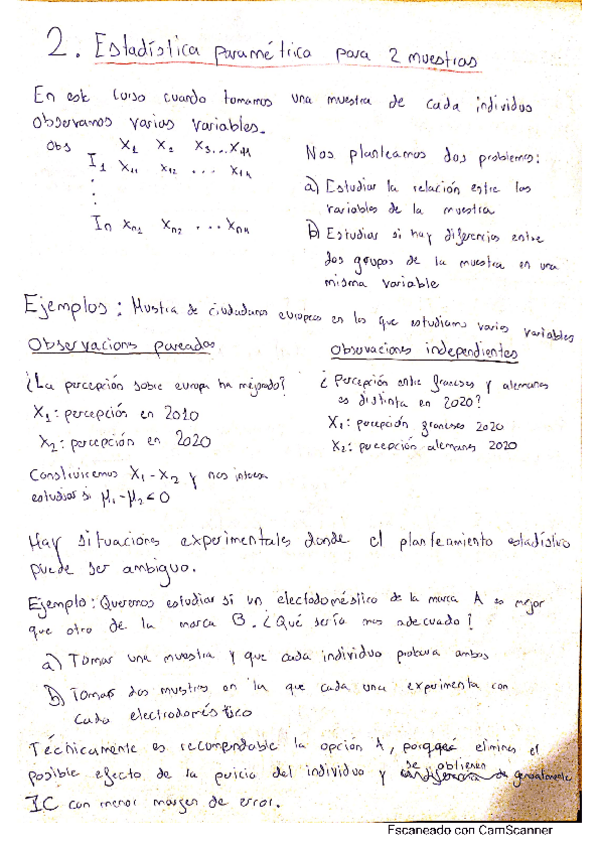 2. Estadística paramétrica para 2 muestras
En este curso cuando tomamos una muestra de cada individuo
observamos varias variables.
Obs X1 X2 X3...XM
I1 X11 X12 ... X1M
.
.
.
In Xn1 Xn2 ... XnM
Nos planteamos dos problemas:
a) Estudiar la relación entre las
variables de la muestra
b) Estudiar si hay diferencias entre
dos grupos de la muestra en una
misma variable
Ejemplos: Muestra de ciudadanos europeos en los que estudiamos varias variables
Observaciones pareadas
¿La percepción sobre europa ha mejorado?
X1: percepción en 2010
X2: percepción en 2020
Construiremos X1-X2 y nos interesa
estudiar si μ1-μ2<0
Observaciones independientes
¿Percepción entre franceses y alemanes
es distinta en 2020?
X1: percepción franceses 2020
X2: percepción alemanes 2020
Hay situaciones experimentales donde el planteamiento estadístico
puede ser ambiguo.
Ejemplo: Queremos estudiar si un electodoméstico de la marca A es mejor
que otro de la marca B. ¿Qué sería mas adecuado?
a) Tomar una muestra y que cada individuo probara ambos
b) Tomar dos muestras en la que cada una experimenta con
cada electrodoméstico
Técnicamente es recomendable la opción A, porque elimina el
posible efecto de la puicio del individuo y se obtienen generalmente
IC con menor margen de error.
Escaneado con CamScanner